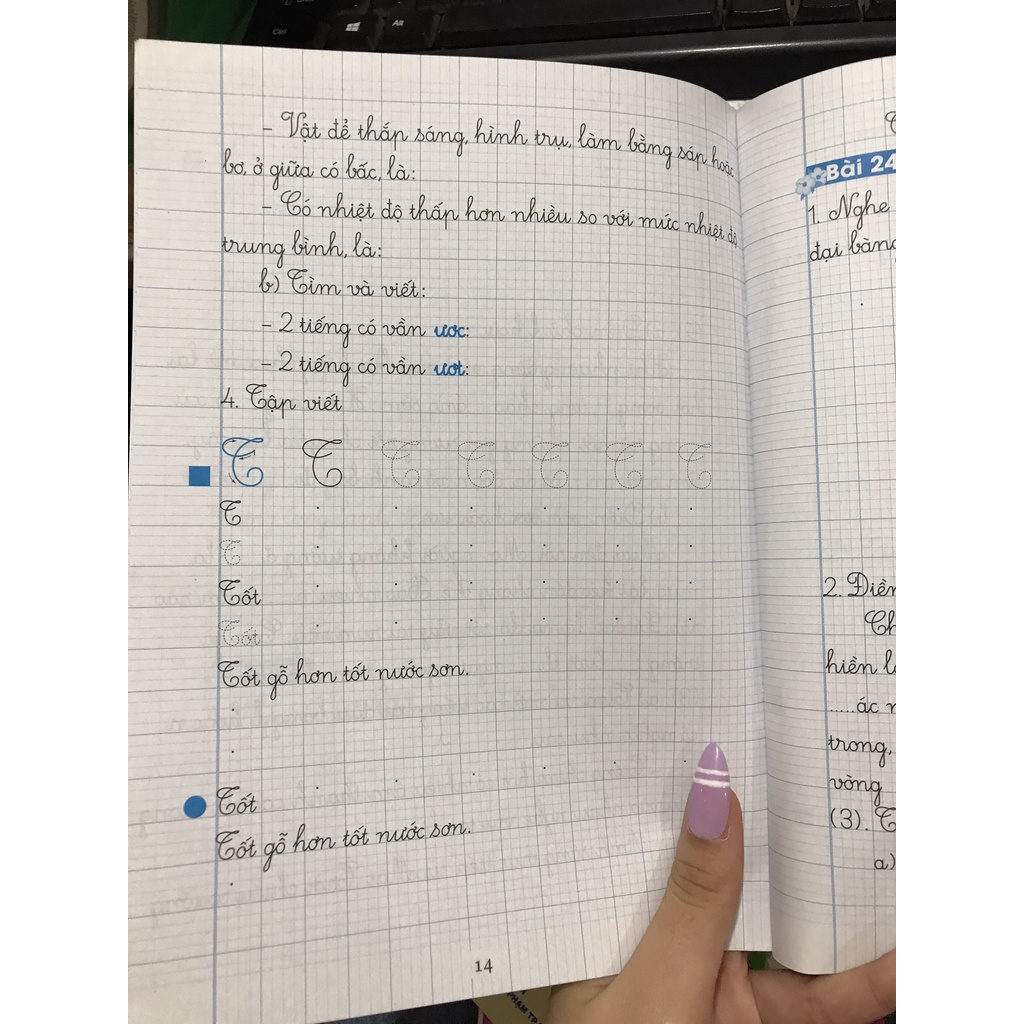 Ctrl
Alt
- Vật để thắp sáng, hình trụ, làm bằng sáp hoặc
bơ, ở giữa có bấc, là:
- Có nhiệt độ thấp hơn nhiều so với mức nhiệt độ
trung bình, là:
b) Tìm và viết:
- 2 tiếng có vần ươc:
- 2 tiếng có vần ươt:
4. Tập viết
T T T T T T T
T
T
Tốt
Tốt
Tốt gỗ hơn tốt nước sơn.
Tốt
Tốt gỗ hơn tốt nước sơn.
14
Bài 24
1. Nghe
đại bàng
2. Điền
Ch
hiền l
.....ác
trong,
vòng
(3). T
a)
PHẠM TR